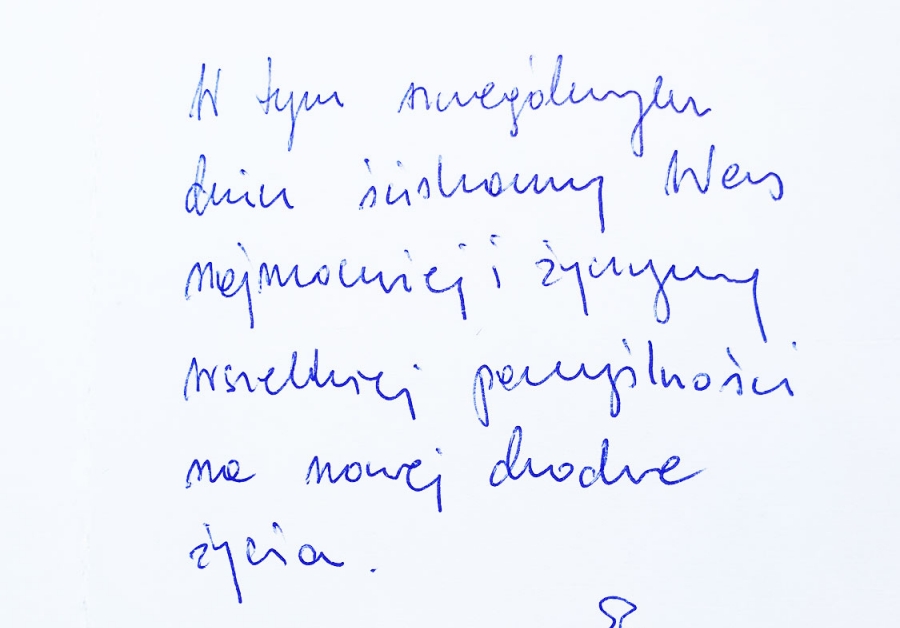 W tym szczególnym
dniu ściskamy Was
najmocniej i życzymy
wszelkiej pomyślności
na nowej drodze
życia.